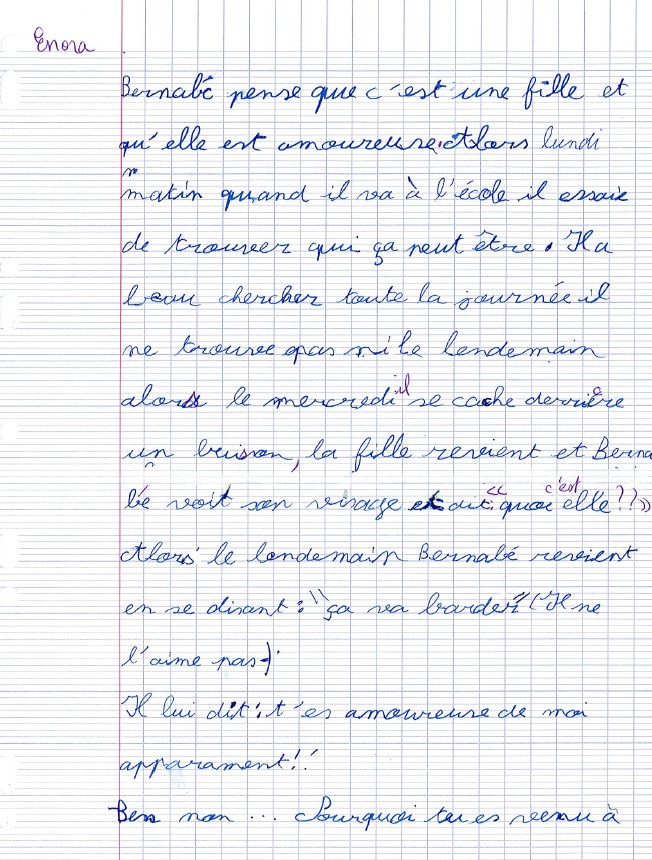 Enora
Bernabé pense que c'est une fille et
qu'elle est amoureuse. Alors lundi
matin quand il va à l'école il essaie
de trouver qui ça peut être. Il a
beau chercher toute la journée il
ne trouve pas ni le lendemain
alors le mercredi il se cache derrière
un buisson, la fille revient et Berna
bé voit son visage et dit: « quoi c'est elle ?? »
Alors le lendemain Bernabé revient
en se disant : "ça va barder" (Il ne
l'aime pas).
Il lui dit : t'es amoureuse de moi
apparament !!
Ben non ... Pourquoi tu es venu à